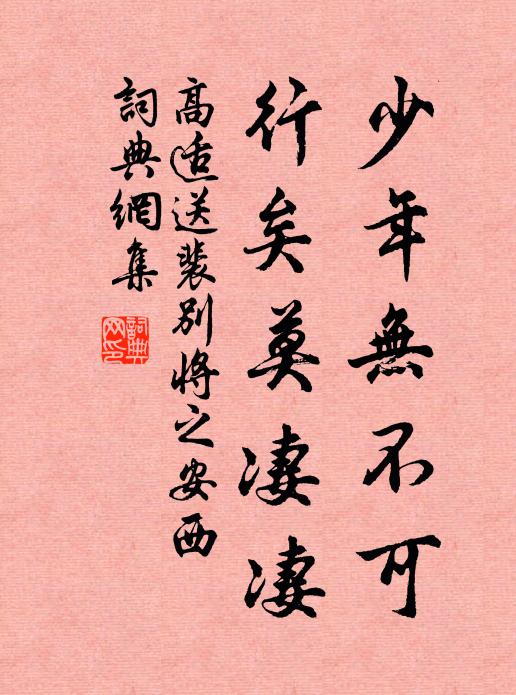 少年無不可
行矣莫凄凄
高适送裴別将之安西
詞典網集
詞典网印